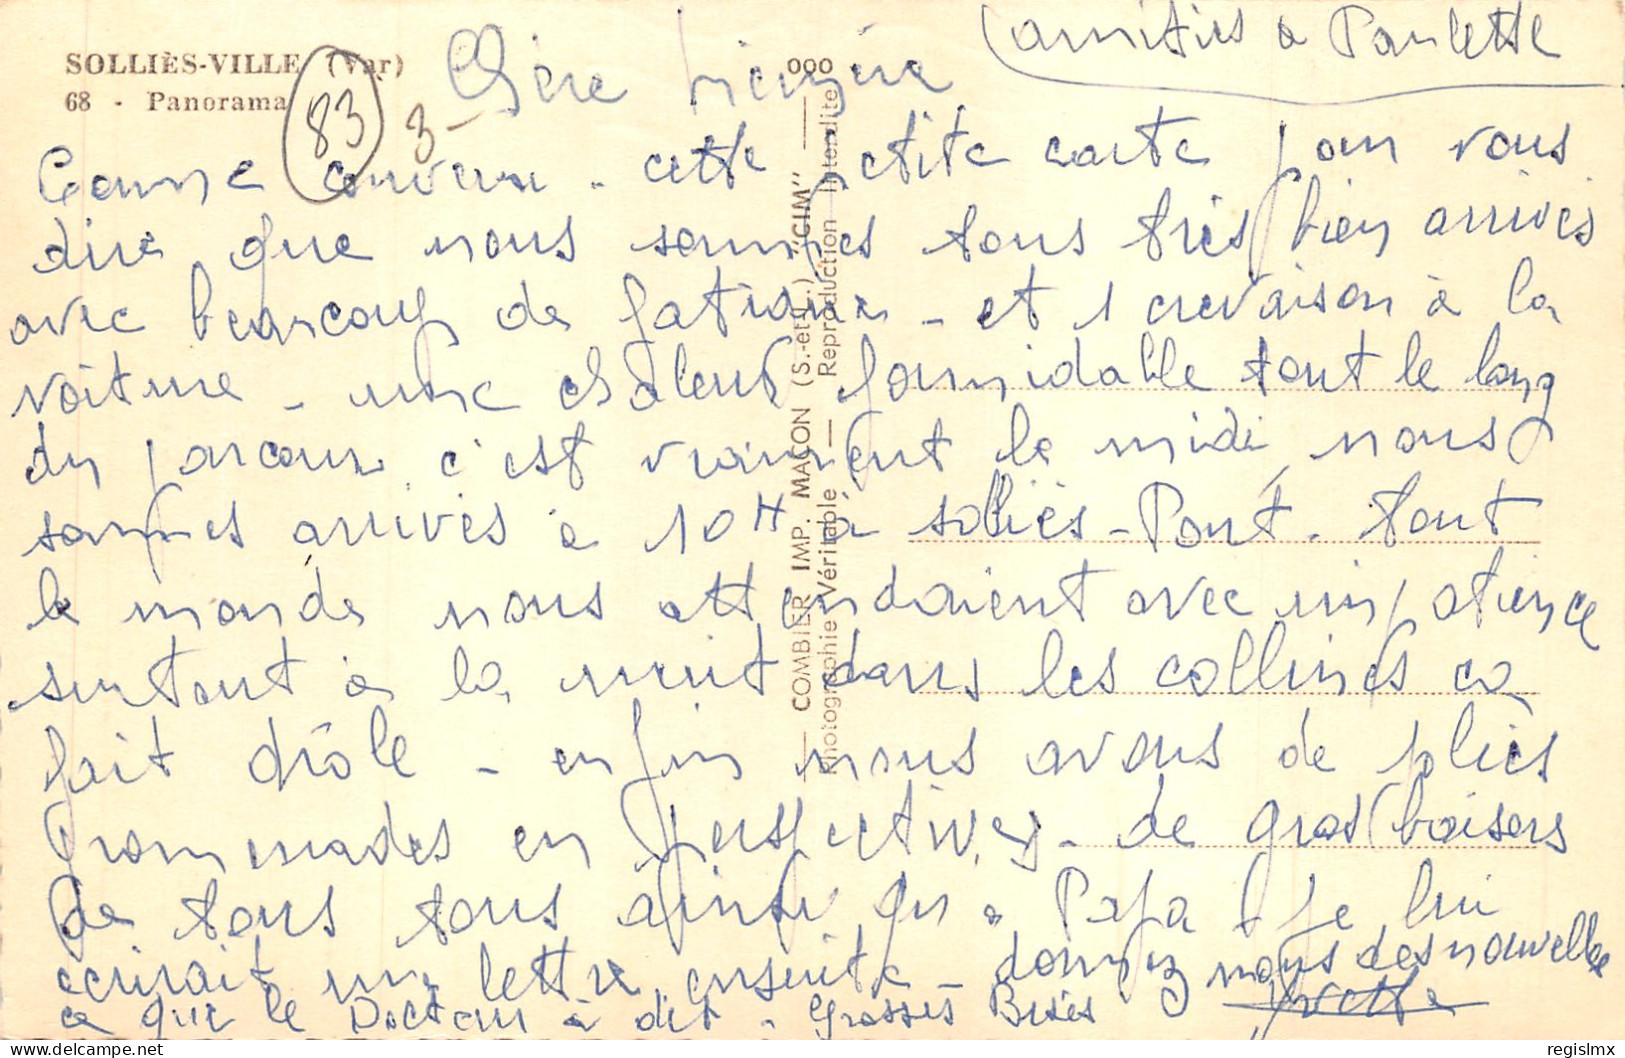 SOLLIÈS-VILLE (Var)
68 - Panorama
83
3-
Chère
amitiés à Paulette
Comme convenu - cette petite carte pour vous
dire que nous sommes tous très bien arrivés
avec beaucoup de fatigue - et 1 crevaison à la
voiture - une chaleur formidable tout le long
du parcours c'est vraiment le midi, nous
sommes arrivés à 10H à solliès-Pont. tout
le monde nous attendaient avec impatience
surtout à la nuit dans les collines ça
fait drôle - enfin nous avons de jolies
promenades en perspectives - de gros baisers
de tous tous ainsi qu'à Papa Je lui
écrirait une lettre ensuite - donnez nous des nouvelles
ce que le Docteur à dit. Grosses Bises Yvette
000
COMBIER IMP. MACON (S.-et-L.) "CIM"
Photographie Véritable — Reproduction Interdite
regislmx